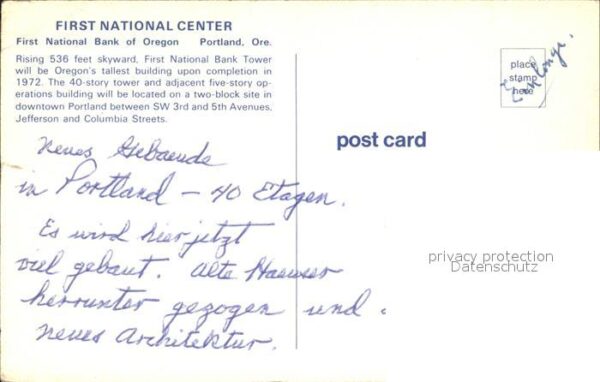 FIRST NATIONAL CENTER
First National Bank of Oregon Portland, Ore.
Rising 536 feet skyward, First National Bank Tower
will be Oregon's tallest building upon completion in
1972. The 40-story tower and adjacent five-story op-
erations building will be located on a two-block site in
downtown Portland between SW 3rd and 5th Avenues,
Jefferson and Columbia Streets.
place
stamp
here
post card
neues Gebaeude
in Portland — 40 Etagen.
Es wird hier jetzt
viel gebaut. Alte Haeuser
herrunter gezogen und
neues Architektur.
privacy protection
Datenschutz